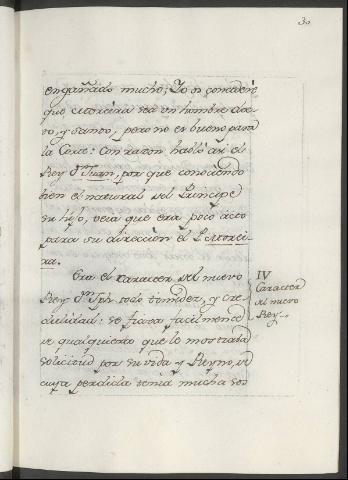 30
engañado mucho; Yo os concederè
que citoreira sea un hombre doc-
to, y santo, pero no es bueno para
la Corte: Con razon habló asi el
Rey Dn Juan, por que conociendo
bien el natural del Principe
su hijo, veia que era poco acto
para su direccion el Letorei-
ra.
Era el caracter del nuevo
Rey Dn Jph todo timidez, y cre-
dulidad: se fiava facilmente
de qualquiera que le mostrara
solicitud por su vida y Reyno, de
cuya perdida tenia mucha do-
IV
Caracter
del nuevo
Rey